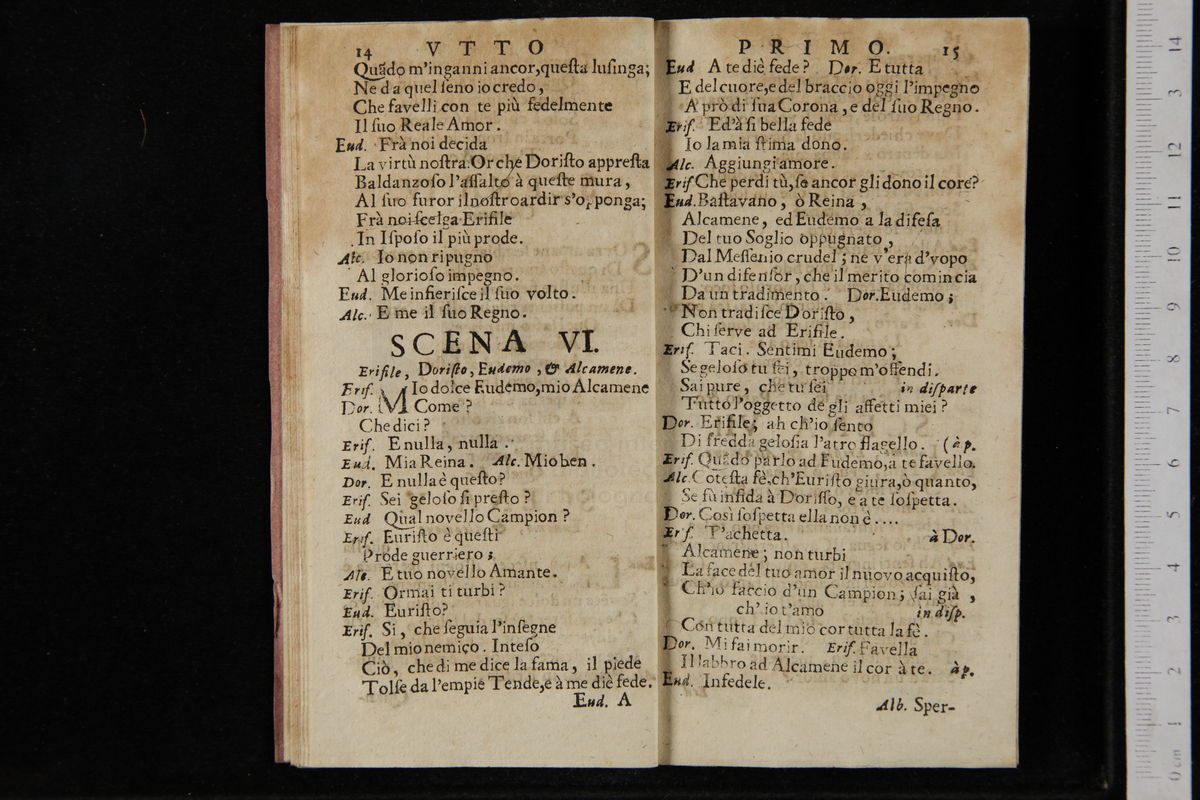 14 VTTO
Quãdo m'inganni ancor, queſta luſinga;
Ne da quel ſeno io credo,
Che favelli con te più fedelmente
Il ſuo Reale Amor.
Eud. Frà noi decida
La virtù noſtra. Or che Doriſto appreſta
Baldanzoſo l'aſſalto à queſte mura,
Al ſuo furor il noſtro ardir s'opponga;
Frà noi ſcelga Erifile
In Iſpoſo il più prode.
Alc. Io non ripugno
Al glorioſo impegno.
Eud. Me inſieriſce il ſuo volto.
Alc. E me il ſuo Regno.
SCENA VI.
Erifile, Doriſto, Eudemo, & Alcamene.
Erif. MIo dolce Eudemo, mio Alcamene
Dor. Come?
Che dici?
Erif. E nulla, nulla.
Eud. Mia Reina. Alc. Mio ben.
Dor. E nulla è queſto?
Erif. Sei geloſo ſi preſto?
Eud Qual novello Campion?
Erif. Euriſto è queſti
Prode guerriero;
Alc. E tuo novello Amante.
Erif. Ormai ti turbi?
Eud. Euriſto?
Erif. Si, che ſeguia l'inſegne
Del mio nemico. Inteſo
Ciò, che di me dice la fama, il piede
Tolſe da l'empie Tende, e à me diè fede.
Eud. A
PRIMO. 15
Eud A te diè fede? Dor. E tutta
E del cuore, e del braccio oggi l'impegno
A prò di ſua Corona, e del ſuo Regno.
Erif. Ed'à ſi bella fede
Io la mia ſtima dono.
Alc. Aggiungi amore.
Erif Che perdi tù, ſe ancor gli dono il core?
Eud. Baſtavano, ò Reina,
Alcamene, ed Eudemo a la difeſa
Del tuo Soglio oppugnato,
Dal Meſſenio crudel; ne v'era d'vopo
D'un difenſor, che il merito comincia
Da un tradimento. Dor. Eudemo;
Non tradiſce Doriſto,
Chi ſerve ad Erifile.
Erif. Taci. Sentimi Eudemo;
Se geloſo tu ſei, troppo m'offendi.
Sai pure, che tu ſei in diſparte
Tutto l'oggetto de gli affetti miei?
Dor. Erifile; ah ch'io ſento
Di fredda geloſia l'atro flagello. (à p.
Erif. Quãdo parlo ad Eudemo, a te favello.
Alc. Coteſta fè, ch'Euriſto giura, ò quanto,
Se fù infida à Doriſſo, e a te ſoſpetta.
Dor. Così ſoſpetta ella non è....
Erif. T'achetta. à Dor.
Alcamene; non turbi
La face del tuo amor il nuovo acquiſto,
Ch'io faccio d'un Campion; ſai già,
ch'io t'amo in diſp.
Con tutta del mio cor tutta la fè.
Dor. Mi fai morir. Erif. Favella
Il labbro ad Alcamene il cor à te. à p.
Eud. Infedele.
Alb. Sper-
14
3
13
12
11
10
9
8
7
6
5
4
3
2
1
0 cm